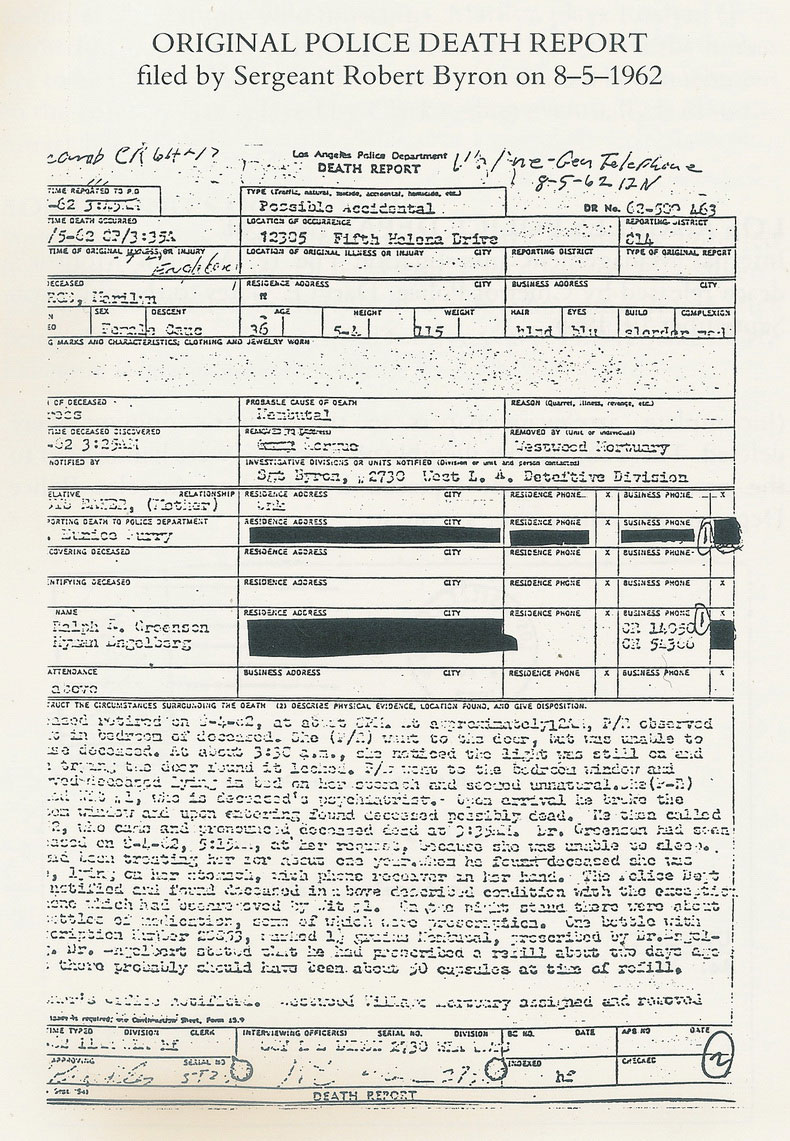 ORIGINAL POLICE DEATH REPORT
filed by Sergeant Robert Byron on 8–5–1962
Los Angeles Police Department
DEATH REPORT
8-5-62 12N
TIME REPORTED TO P.D
TYPE (Traffic, natural, suicide, accidental, homicide, etc.)
Possible Accidental
DR No.
TIME DEATH OCCURRED
LOCATION OF OCCURRENCE
REPORTING DISTRICT
12305 Fifth Helena Drive
814
TIME OF ORIGINAL ILLNESS, OR INJURY
LOCATION OF ORIGINAL ILLNESS OR INJURY
CITY
REPORTING DISTRICT
TYPE OF ORIGINAL REPORT
ECEASED
RESIDENCE ADDRESS
CITY
BUSINESS ADDRESS
CITY
Marilyn
SEX
DESCENT
AGE
HEIGHT
WEIGHT
HAIR
EYES
BUILD
COMPLEXION
Female Cauc
36
5-4
115
blnd
blu
slender med
G MARKS AND CHARACTERISTICS; CLOTHING AND JEWELRY WORN
OF DECEASED
PROBABLE CAUSE OF DEATH
REASON (Quarrel, illness, revenge, etc.)
Nembutal
TIME DECEASED DISCOVERED
REMOVED BY (Unit or individual)
-62 3:25AM
Morgue
Westwood Mortuary
NOTIFIED BY
INVESTIGATIVE DIVISIONS OR UNITS NOTIFIED (Division or unit and person contacted)
Sgt Byron, 2730 West L. A. Detective Division
ELATIVE
RELATIONSHIP
RESIDENCE ADDRESS
CITY
RESIDENCE PHONE
X
BUSINESS PHONE
X
BAKER, (Mother)
Unk
PORTING DEATH TO POLICE DEPARTMENT
RESIDENCE ADDRESS
CITY
RESIDENCE PHONE
X
BUSINESS PHONE
X
Eunice Murry
COVERING DECEASED
RESIDENCE ADDRESS
CITY
RESIDENCE PHONE
X
BUSINESS PHONE
X
ENTIFYING DECEASED
RESIDENCE ADDRESS
CITY
RESIDENCE PHONE
X
BUSINESS PHONE
X
NAME
RESIDENCE ADDRESS
CITY
RESIDENCE PHONE
X
BUSINESS PHONE
Ralph R. Greenson
Hyman Engelberg
ATTENDANCE
BUSINESS ADDRESS
CITY
RESIDENCE PHONE
X
BUSINESS PHONE
X
above
RUCT THE CIRCUMSTANCES SURROUNDING THE DEATH (2) DESCRIBE PHYSICAL EVIDENCE, LOCATION FOUND, AND GIVE DISPOSITION.
ased retired on 8-4-62, at about 8PM. At approximately 12AM, P/R observed
in bedroom of deceased. She (P/R) went to the door, but was unable to
se deceased. At about 3:30 a.m., she noticed the light was still on and
trying the door found it locked. P/R went to the bedroom window and
rved deceased lying in bed on her stomach and seemed unnatural.
who is deceased's psychiatrist. Upon arrival he broke the
window and upon entering found deceased possibly dead. He then called
who came and pronounced deceased dead at 3:35AM. Dr. Greenson had seen
ased on 8-4-62, 5:15 at her request, because she was unable to sleep.
had been treating her for about one year. When he found deceased she was
lying on her stomach, with phone receiver in her hand. The Police Dept
notified and found deceased in above described condition with the exception
one which had been removed by Wit #1. On the night stand there were about
ottles of medication, some of which were prescription. One bottle with
cription Number 20853, marked 1½ grains Nembutal, prescribed by Dr. Engel-
Dr. Engelbert stated that he had prescribed a refill about two days ago
there probably should have been about 50 capsules at time of refill.
ner's office notified. Westwood Village Mortuary assigned and removed
TIME TYPED
DIVISION
CLERK
INTERVIEWING OFFICER(S)
SERIAL NO.
DIVISION
BC NO.
DATE
APB NO
DATE
APPROVING
SERIAL NO
INDEXED
CHECKED
hf
2
DEATH REPORT